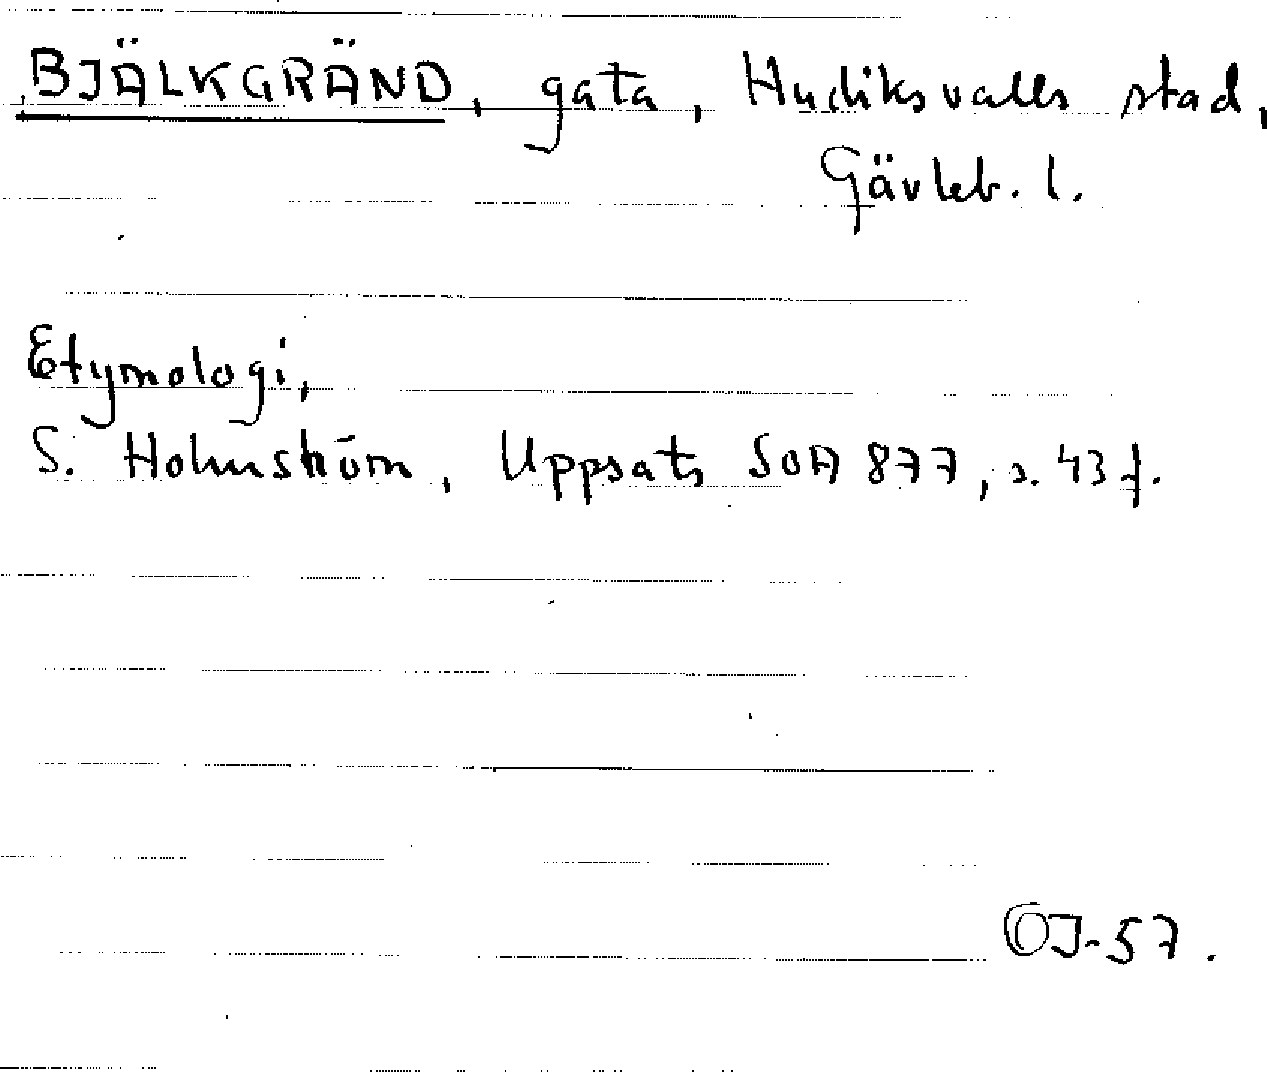 BJÄLKGRÄND, gata, Hudiksvalls stad,
Gävleb. l.
Etymologi,
S. Holmström, Uppsats SOA 877, s. 43 f.
OJ-57.